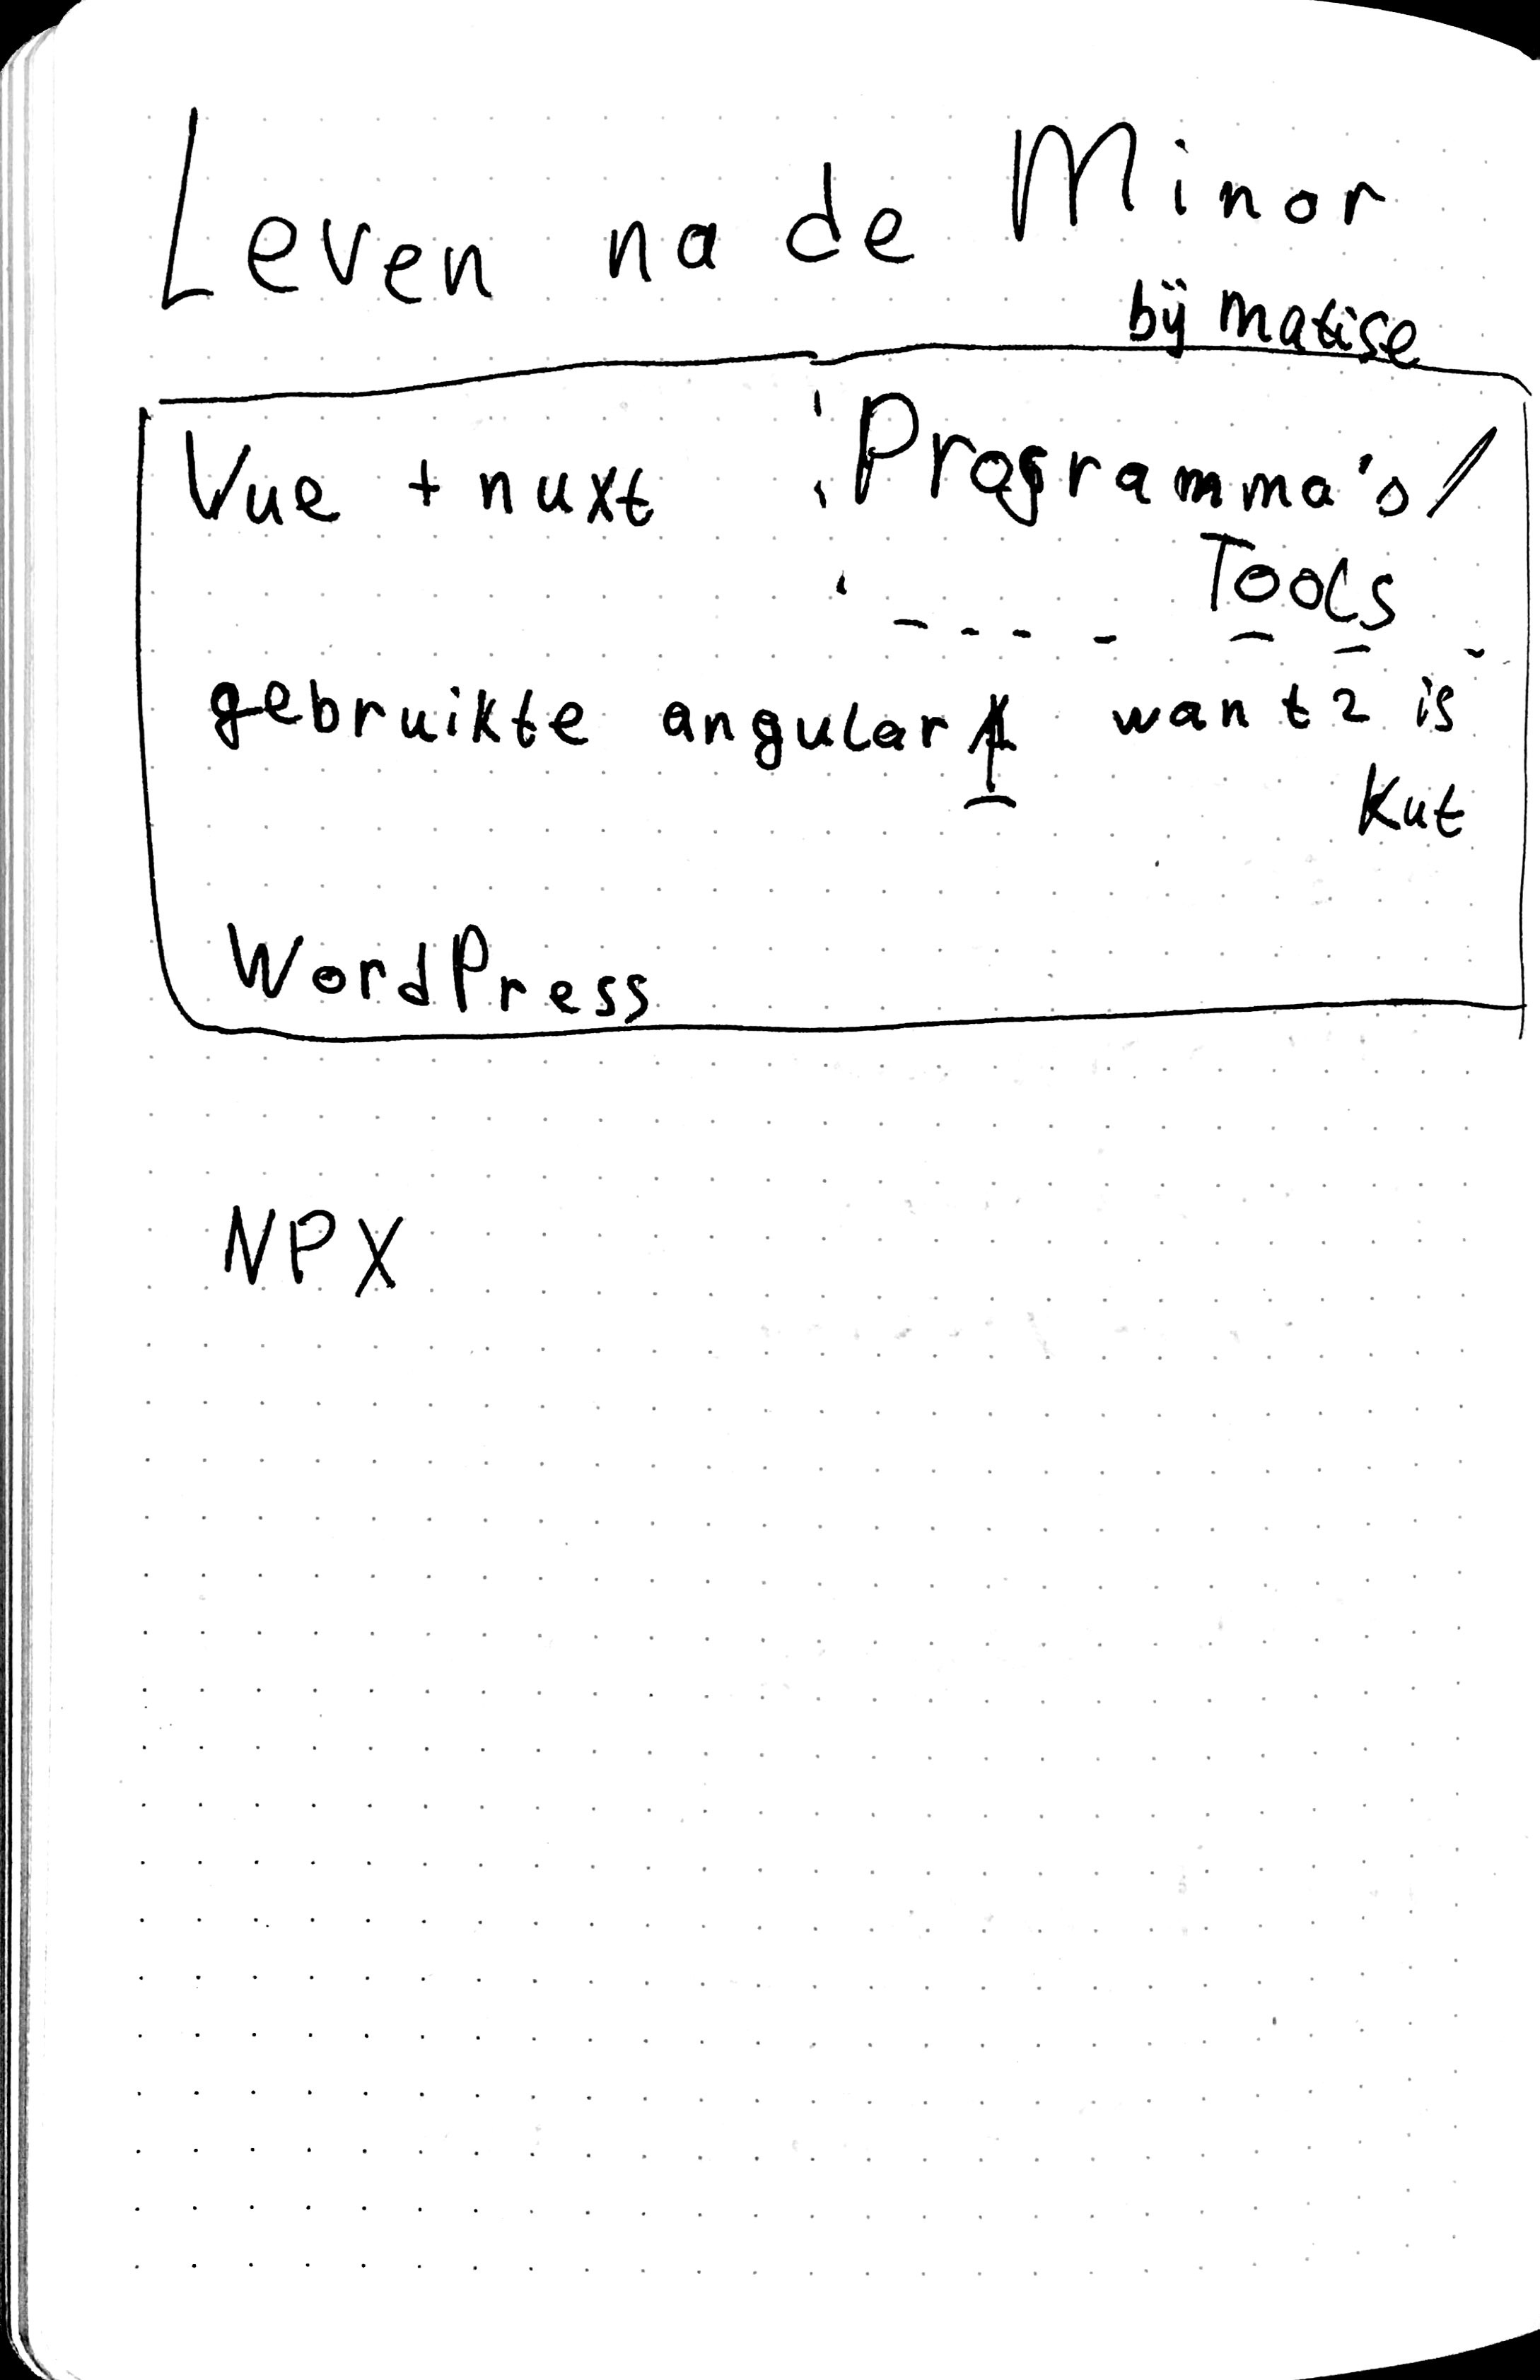 Leven na de Minor
bij matise
Vue + nuxt Programma's/
Tools
gebruikte angular 1 want 2 is
kut
WordPress
NPX